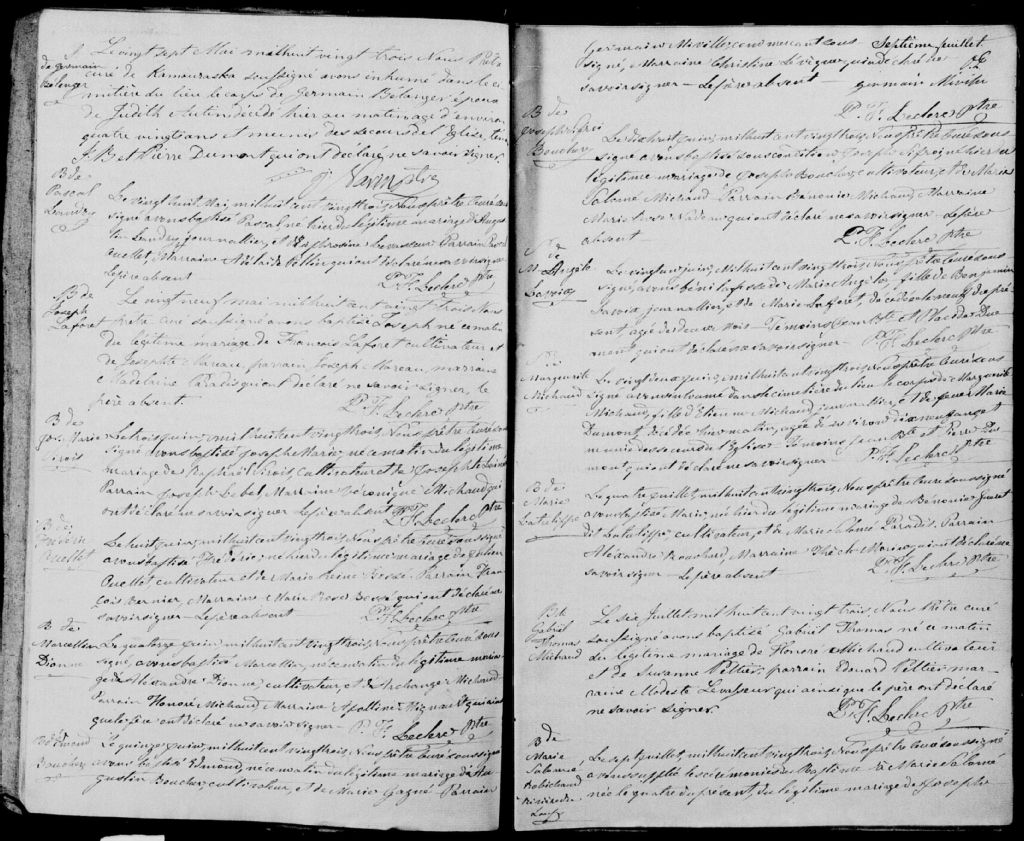 S de germain Bélanger
Le vingt sept Mai mil huit vingt trois Nous Prêtre
curé de Kamouraska soussigné avons inhumé dans le ci
mitière du lieu le corps de Germain Bélanger époux
de Judith Autin décédé hier au matin agé d'environ
quatre vingt ans et muni des secours de l'Eglise, tém
J. B. et Pierre Dumont qui ont déclaré ne savoir signer
J. Varin Ptre
B de Pascal Landry
Le vingt huit Mai, mil huit cent vingt trois, Nous prêtre Curé sous
signé avons baptisé Pascal, né hier du légitime mariage d'Augus
tin Landry, journallier, et d'Euphrosine Levasseur Parrain Pascal
Ouellet, Marraine Adelaïde Pelletier qui ont déclaré ne savoir signer
Le père absent
P. F. Leclerc Ptre
B de Joseph Laforet
Le vingt neuf mai mil huit cent vingt trois Nous
prêtre curé soussigné avons baptisé Joseph né ce matin
du légitime mariage de François Laforet cultivateur et
de Josephte Moreau, parrain Joseph Moreau, marraine
Madelaine qui ont déclaré ne savoir signer, le
père absent.
P. F. Leclerc Ptre
B de Jos. Marie Sirois
Le trois juin, mil huit cent vingt trois, Nous prêtre Curé sous
signé avons baptisé Joseph Marie, né ce matin du légitime
mariage de Baptiste Sirois, Cultivateur et de Josephte
Parrain Joseph Lebel, Marraine Véronique Michaud qui
ont déclaré ne savoir signer Le père absent P. F. Leclerc Ptre
B de Frédéric Ouellet
Le huit juin, mil huit cent vingt trois, Nous prêtre Curé soussigné
avons baptisé Fréderic, né hier du légitime mariage de
Ouellet, cultivateur et de Marie Reine Bossé Parrain Fran
çois Bernier, Marraine Marie Rose Bossé qui ont déclaré ne
savoir signer Le père absent P. F. Leclerc Ptre
B de Marcellin Dionne
Le quatorze juin, mil huit cent vingt trois, Nous prêtre Curé sous
signé, avons baptisé Marcellin, né ce matin du légitime maria
ge de Alexandre Dionne, cultivateur, et de Archange Michaud
Parrain Honoré Michaud, Marraine Apolline Mignault qui ainsi
que le père ont déclaré ne savoir signer P. F. Leclerc Ptre
B d'Edmond Boucher
Le quinze juin, mil huit cent vingt trois, Nous prêtre Curé soussigné
avons baptisé Edmond, né ce matin du légitime mariage d'Au
gustin Boucher, cultivateur, et de Marie Gagné Parrain
Germain Miville, commerçant sous Septième feuillet
signé, Marraine Christine qui a déclaré ne
savoir signer Le père absent germain Miville
P. F. Leclerc Ptre
B de Joseph Boucher
Le dix huit juin, mil huit cent vingt trois, Nous prêtre Curé sous
signé avons baptisé sous condition Joseph né hier du
légitime mariage de Joseph Boucher, cultivateur, et de Marie
Salomé Michaud Parrain Bénonie Michaud, Marraine
Marie qui ont déclaré ne savoir signer. Le père
absent
P. F. Leclerc Ptre
S de M. Angèle Savoix
Le vingt un juin, Mil huit cent vingt trois, Nous prêtre Curé sous
signé, avons béni la fosse de Marie Angèle, fille de Benjamin
Savoix, journallier, et de Marie Laforet, décédée le neuf du pré
sent, agée de deux mois Témoins Jean Bte et Placide Du
mont qui ont déclaré ne savoir signer P. F. Leclerc Ptre
S de Marguerite Michaud
Le vingt deux juin, mil huit cent vingt trois, Nous prêtre Curé sous
signé avons inhumé dans le cimetière du lieu le corps de Marguerite
Michaud, fille d'Etienne Michaud, journallier, et de feue Marie
Dumont, décédée hier matin, agée d'environ dix neuf ans et
munie des secours de l'Eglise Témoins Jean Bte et Pierre Du
mont, qui ont déclaré ne savoir signer P. F. Leclerc Ptre
B de Marie Latulippe
Le quatre juillet, mil huit cent vingt trois, Nous prêtre Curé soussigné
avons baptisé Marie, née hier du légitime mariage de Bénonie
dit Latulippe, cultivateur, et de Marie Salomé Paradis. Parrain
Alexandre Bouchard, Marraine Morin, qui ont déclaré ne
savoir signer Le père absent P. F. Leclerc Ptre
B de Gabriel Thomas Michaud
Le six Juillet mil huit cent vingt trois Nous Prêtre curé
soussigné avons baptisé Gabriël Thomas né ce matin
du légitime mariage de Honoré Michaud cultivateur
et de Susanne Peltier, parrain Edouard Peltier mar
raine Modeste Levasseur qui ainsi que le père ont déclaré
ne savoir signer.
P. F. Leclerc Ptre
B de Marie Salomé Robichaud Rivière du Loup
Le sept juillet, mil huit cent vingt trois, Nous prêtre Curé soussigné
avons suppléé les cérémonies du Baptême à Marie Salomé
née le quatre du présent, du légitime mariage de Joseph